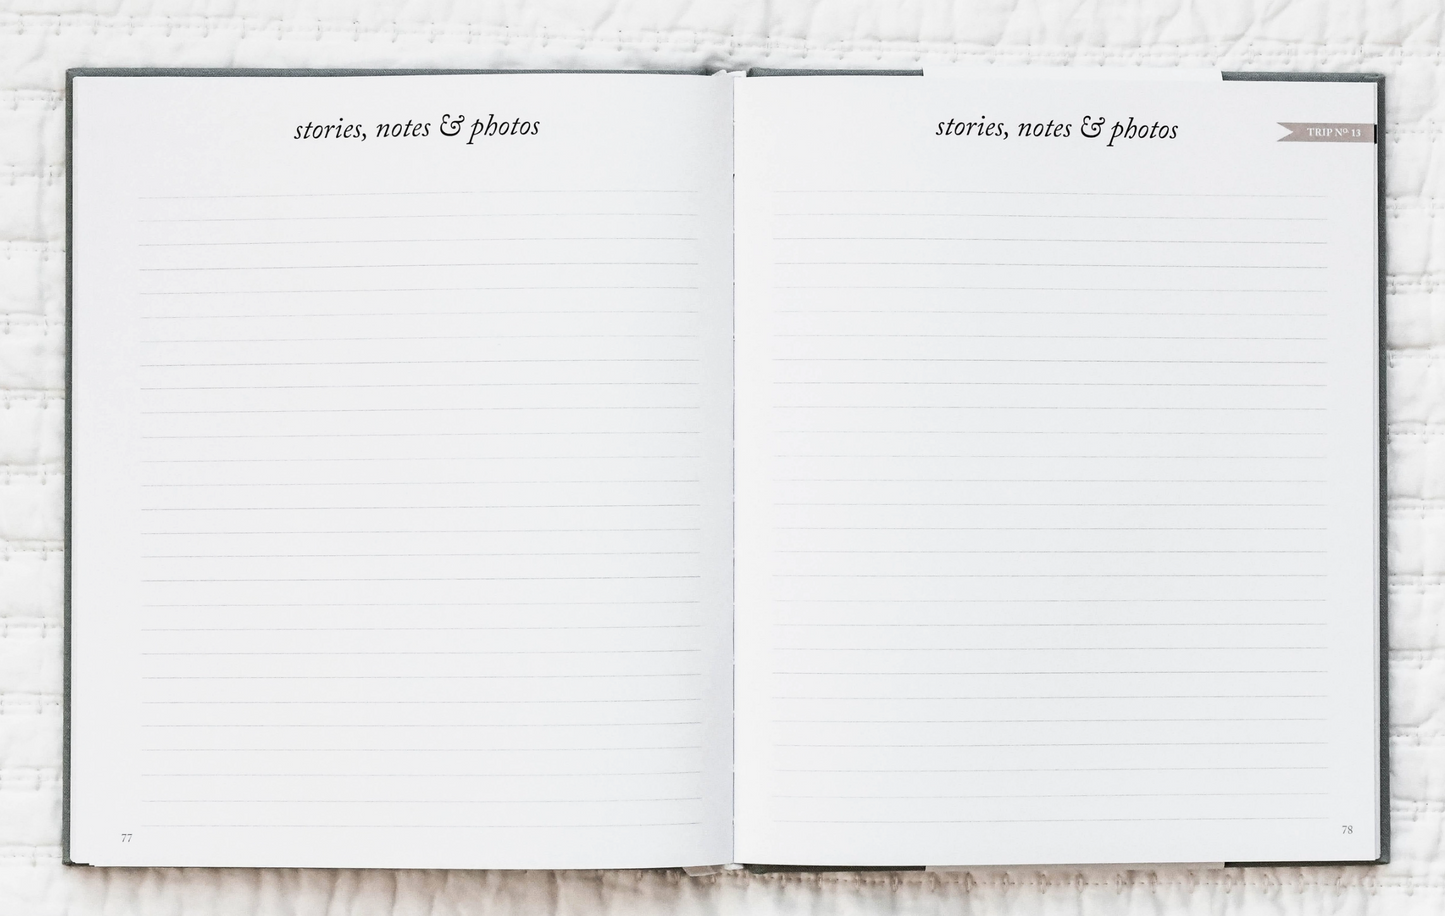 stories, notes & photos
77
stories, notes & photos
TRIP Nº 13
78